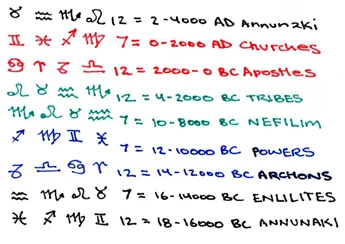 ♉ ♒ ♏ ♌ 12 = 2-4000 AD Annunaki
♊ ♓ ♐ ♍ 7 = 0-2000 AD Churches
♋ ♈ ♑ ♎ 12 = 2000-0 BC Apostles
♌ ♉ ♒ ♏ 12 = 4-2000 BC TRIBES
♏ ♌ ♉ ♒ 7 = 10-8000 BC NEFILIM
♐ ♍ ♊ ♓ 7 = 12-10000 BC POWERS
♑ ♎ ♋ ♈ 12 = 14-12000 BC ARCHONS
♒ ♏ ♌ ♉ 7 = 16-14000 BC ENLILITES
♓ ♐ ♍ ♊ 12 = 18-16000 BC ANNUNAKI